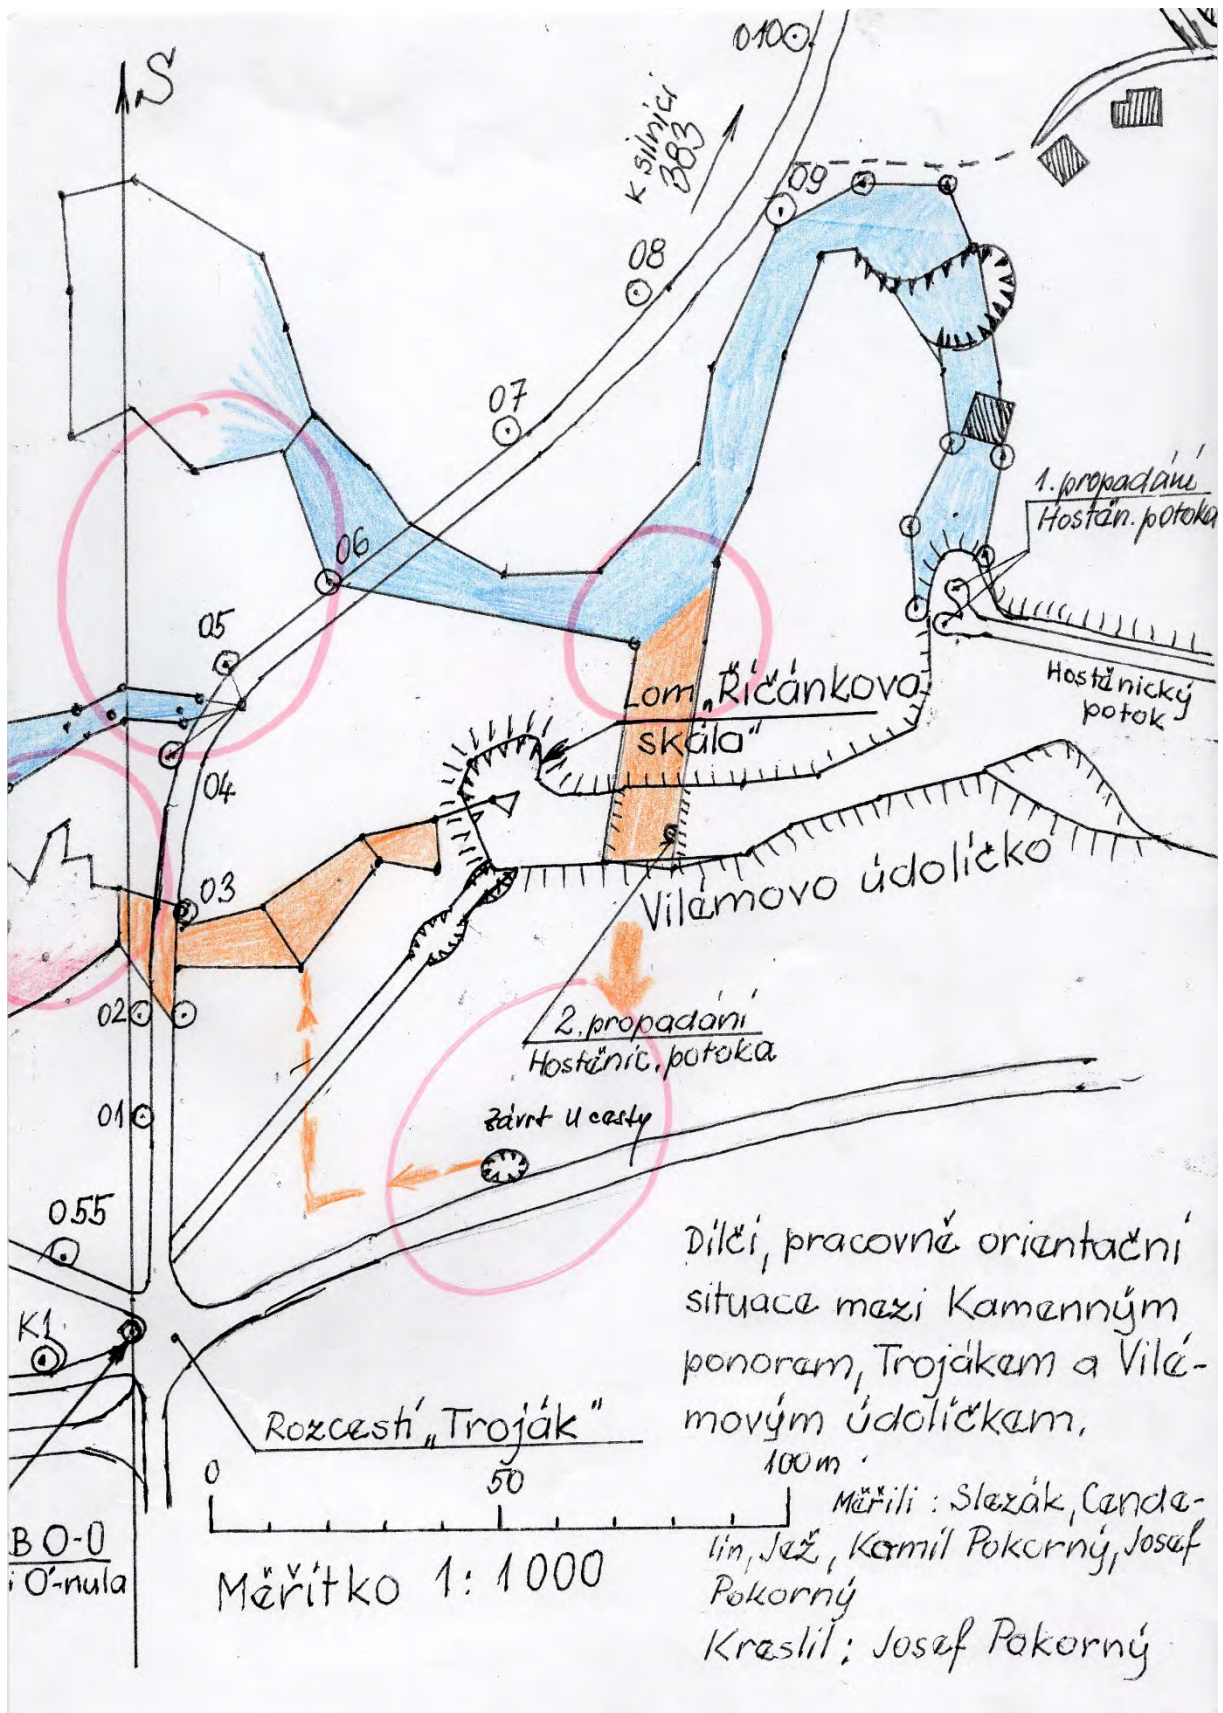 S
010
k silnici
383
09
08
07
06
05
04
03
02
01
055
K1
1. propadání
Hostěn. potoka
Hostěnický
potok
Lom „Říčánkova
skála"
Vilémovo údolíčko
2. propadání
Hostěnic. potoka
závrt U cesty
Rozcestí „Troják"
B 0-0
i O'-nula
0
50
100m
Měřítko 1: 1000
Dílčí, pracovně orientační
situace mezi Kamenným
ponorem, Trojákem a Vilé-
movým údolíčkem.
Měřili : Slezák, Cende-
lín, Jež, Kamil Pokorný, Josef
Pokorný
Kreslil: Josef Pokorný